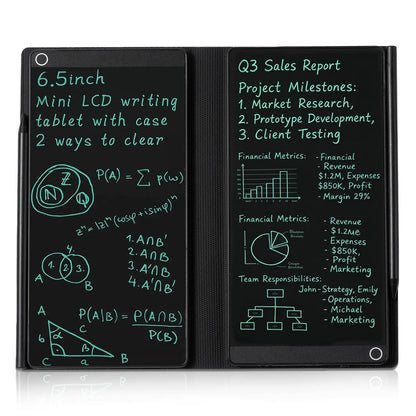 6.5inch
Mini LCD writing
tablet with case
2 ways to clear
Z
N
Q
P(A) = ∑ p(ω)
zⁿ=|z|ⁿ(cosφ+isinφ)ⁿ
4.
1. 2. 3.
A
B
1. A∩B'
2. A∩B
3. A'∩B
4. A'∩B'
P(A|B) = P(A∩B)
P(B)
A
b
α
c
β
C
a
B
Q3 Sales Report
Project Milestones:
1. Market Research,
2. Prototype Development,
3. Client Testing
Financial Metrics:
- Financial
- Revenue
$1.2M, Expenses
$850K, Profit
- Margin 29%
Financial Metrics:
- Revenue
- $1.2M
- Expenses
- $850K,
- Profit
- Marketing
Team Responsibilities:
John-Strategy, Emily
- Operations,
- Michael
- Marketing